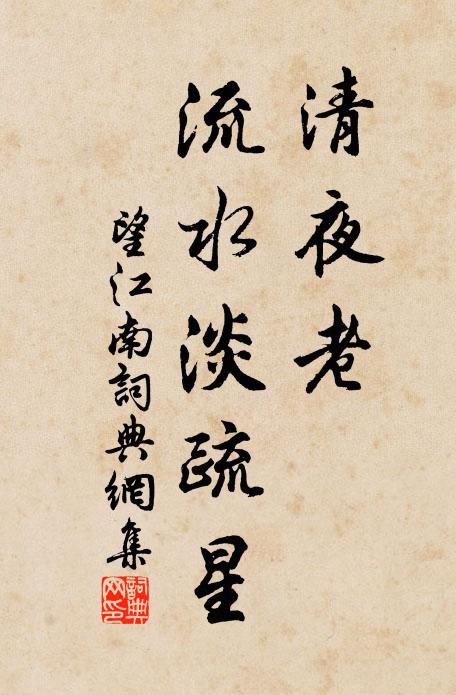 清夜老
流水淡疏星
望江南詞典網集
詞典網印